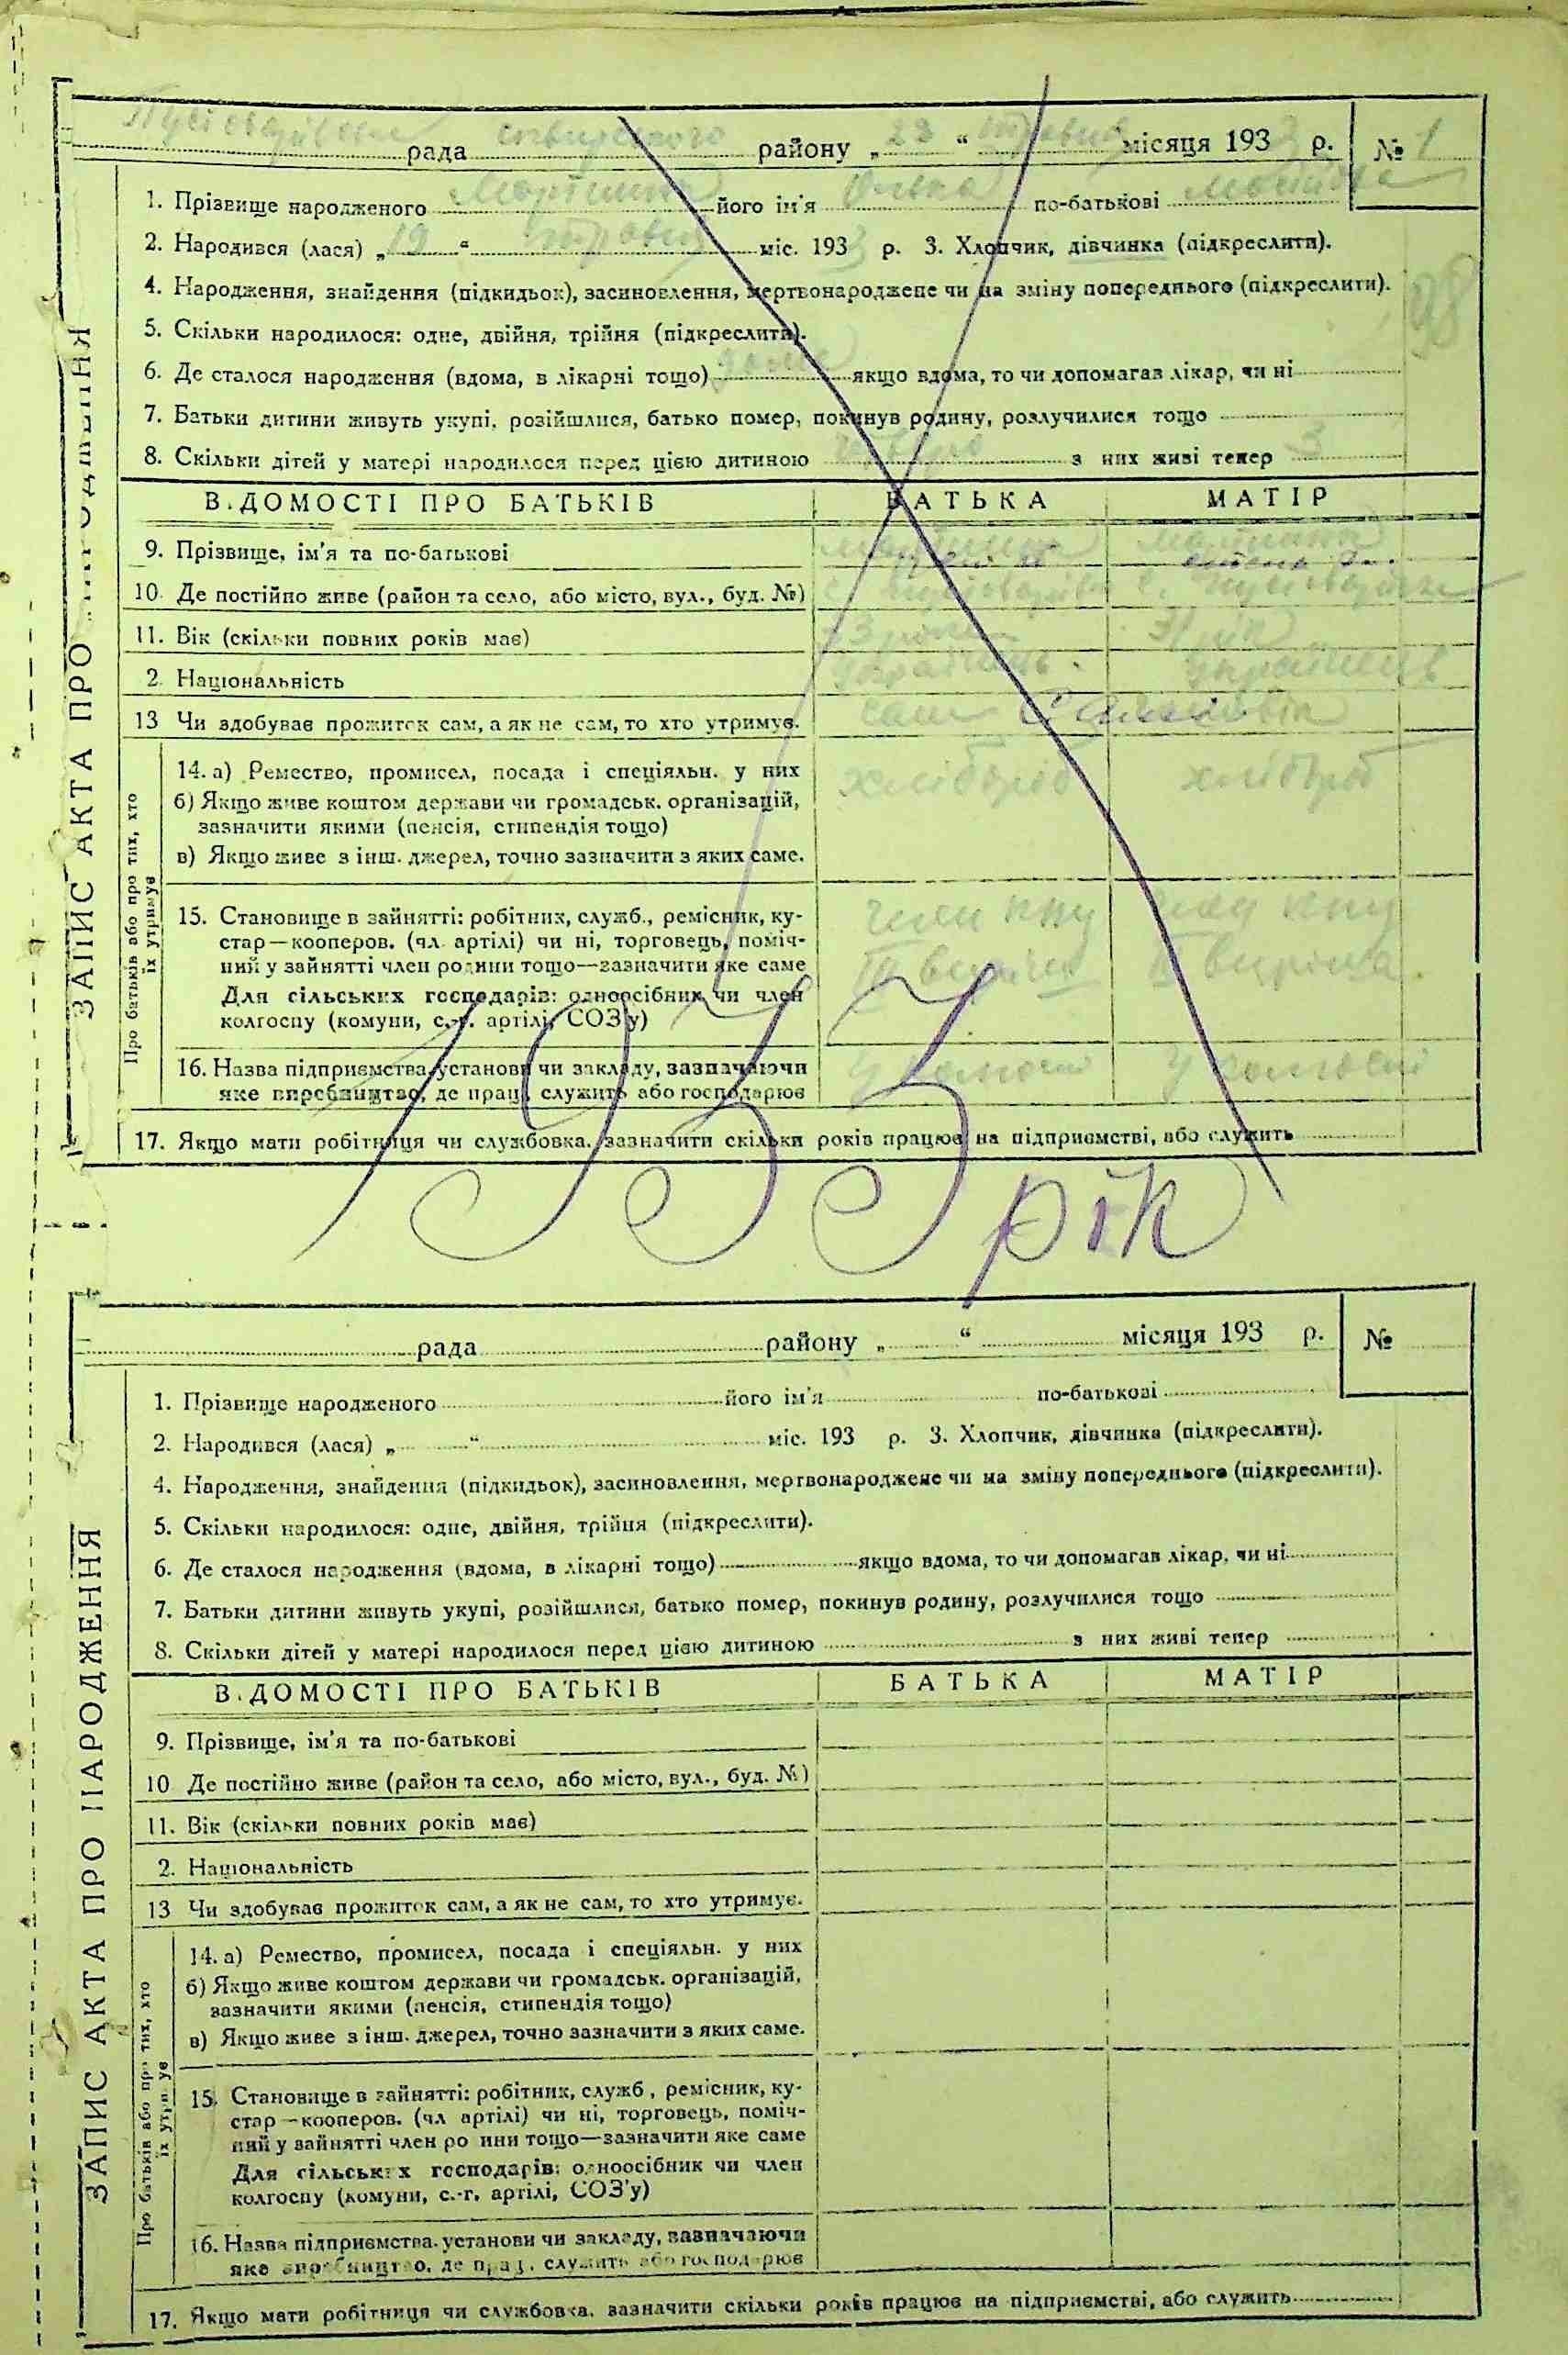 рада стависького району „ 23 “ травня місяця 193 р. № 1
1. Прізвище народженого Мартинюк його ім'я по-батькові
2. Народився (лася) „ 19 “ травня міс. 1933 р. 3. Хлопчик, дівчинка (підкреслити).
98
4. Народження, знайдення (підкидьок), засиновлення, мертвонароджене чи на зміну попереднього (підкреслити).
5. Скільки народилося: одне, двійня, трійня (підкреслити).
6. Де сталося народження (вдома, в лікарні тощо) дома якщо вдома, то чи допомагав лікар, чи ні
7. Батьки дитини живуть укупі, розійшлися, батько помер, покинув родину, розлучилися тощо
8. Скільки дітей у матері народилося перед цією дитиною з них живі тепер 3
ВІДОМОСТІ ПРО БАТЬКІВ БАТЬКА МАТІР
9. Прізвище, ім'я та по-батькові
10. Де постійно живе (район та село, або місто, вул., буд. №) с. с.
11. Вік (скільки повних років має)
2. Національність українець українець
13 Чи здобуває прожиток сам, а як не сам, то хто утримує. сам
14. а) Ремество, промисел, посада і спеціяльн. у них хлібороб хлібороб
б) Якщо живе коштом держави чи громадськ. організацій,
зазначити якими (пенсія, стипендія тощо)
в) Якщо живе з інш. джерел, точно зазначити з яких саме.
15. Становище в зайнятті: робітник, служб., ремісник, ку-
стар—кооперов. (чл. артілі) чи ні, торговець, поміч-
ний у зайнятті член родини тощо—зазначити яке саме
Для сільських господарів: одноосібник чи член
колгоспу (комуни, с.-г. артілі, СОЗ'у)
член член
16. Назва підприємства, установи чи закладу, зазначаючи
яке виробництво, де прац., служить або господарює
у колгоспі у колгоспі
17. Якщо мати робітниця чи службовка, зазначити скільки років працює на підприємстві, або служить
ЗАПИС АКТА ПРО НАРОДЖЕННЯ
Про батьків або про тих, хто
їх утримує
1933 рік
рада району „ “ місяця 193 р. №
1. Прізвище народженого його ім'я по-батькові
2. Народився (лася) „ “ міс. 193 р. 3. Хлопчик, дівчинка (підкреслити).
4. Народження, знайдення (підкидьок), засиновлення, мертвонароджене чи на зміну попереднього (підкреслити).
5. Скільки народилося: одне, двійня, трійня (підкреслити).
6. Де сталося народження (вдома, в лікарні тощо) якщо вдома, то чи допомагав лікар, чи ні
7. Батьки дитини живуть укупі, розійшлися, батько помер, покинув родину, розлучилися тощо
8. Скільки дітей у матері народилося перед цією дитиною з них живі тепер
ВІДОМОСТІ ПРО БАТЬКІВ БАТЬКА МАТІР
9. Прізвище, ім'я та по-батькові
10 Де постійно живе (район та село, або місто, вул., буд. №)
11. Вік (скільки повних років має)
2. Національність
13 Чи здобуває прожиток сам, а як не сам, то хто утримує.
14. а) Ремество, промисел, посада і спеціяльн. у них
б) Якщо живе коштом держави чи громадськ. організацій,
зазначити якими (пенсія, стипендія тощо)
в) Якщо живе з інш. джерел, точно зазначити з яких саме.
15. Становище в зайнятті: робітник, служб., ремісник, ку-
стар—кооперов. (чл артілі) чи ні, торговець, поміч-
ний у зайнятті член родини тощо—зазначити яке саме
Для сільських господарів: одноосібник чи член
колгоспу (комуни, с.-г. артілі, СОЗ'у)
16. Назва підприємства, установи чи закладу, зазначаючи
яке виробництво, де прац., служить або господарює
17. Якщо мати робітниця чи службовка, зазначити скільки років працює на підприємстві, або служить
ЗАПИС АКТА ПРО НАРОДЖЕННЯ
Про батьків або про тих, хто
їх утримує